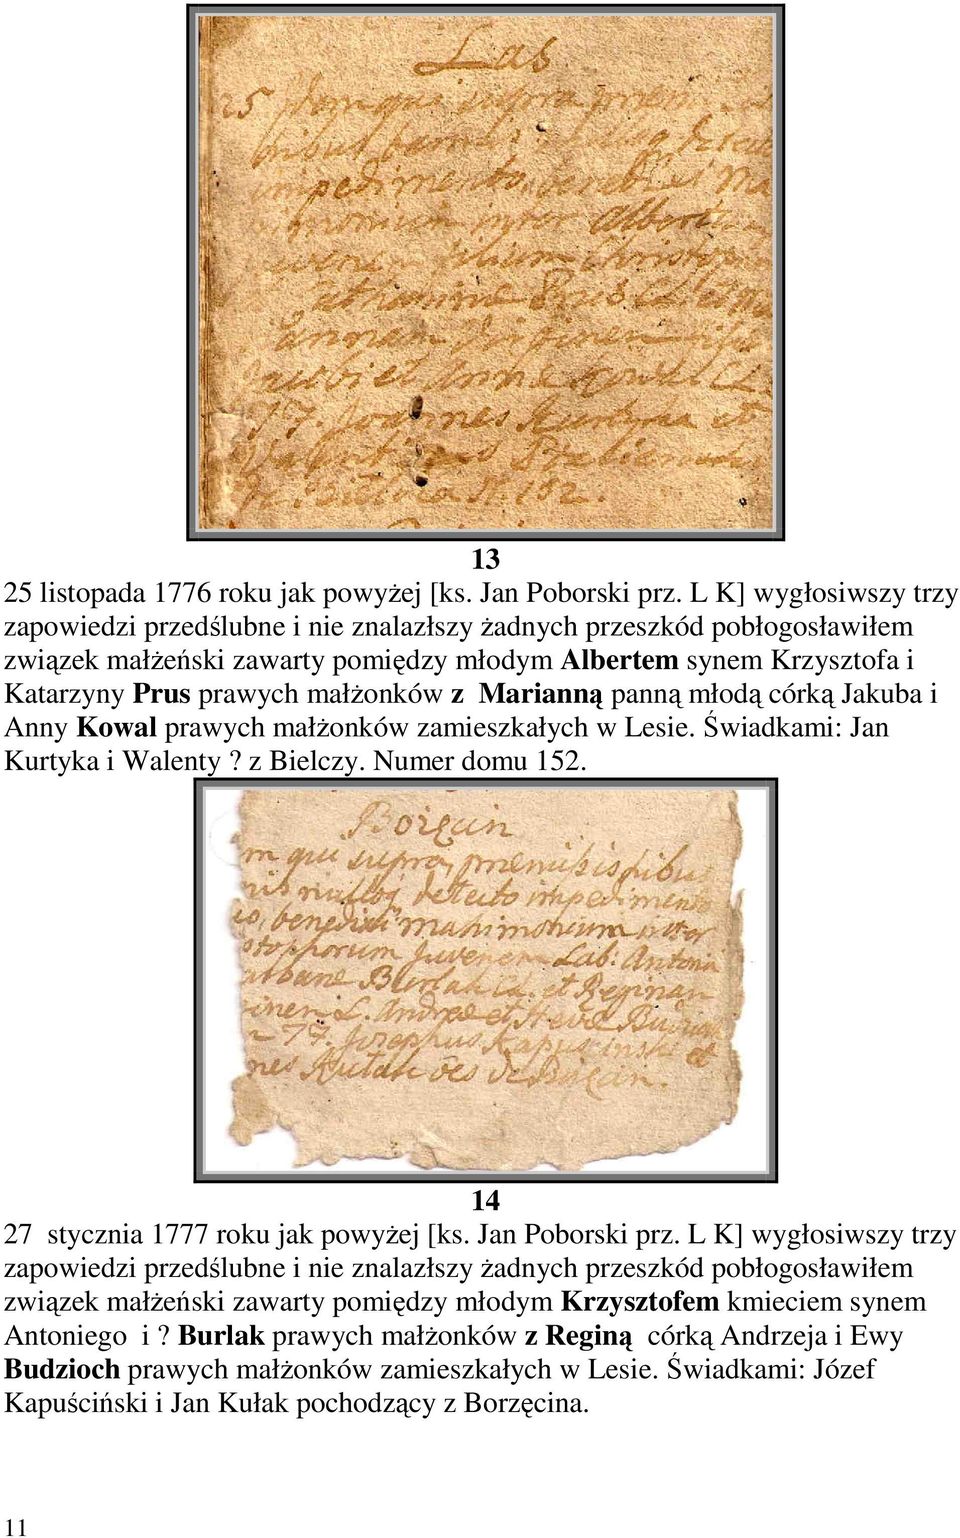 Las
25 Idem qui supra premissis
tribus bannis detecto
impedimento benedixi Ma
trimonium inter Albertum
juvenem filium Christophori
et Prus
Annam Virginem
Jacobi et Anne Kowal CL
77. Joannes Kurtyka et
de Bielcza Nr. 152.
13
25 listopada 1776 roku jak powyżej [ks. Jan Poborski prz. L K] wygłosiwszy trzy
zapowiedzi przedślubne i nie znalazłszy żadnych przeszkód pobłogosławiłem
związek małżeński zawarty pomiędzy młodym Albertem synem Krzysztofa i
Katarzyny Prus prawych małżonków z Marianną panną młodą córką Jakuba i
Anny Kowal prawych małżonków zamieszkałych w Lesie. Świadkami: Jan
Kurtyka i Walenty? z Bielczy. Numer domu 152.
Borzęcin
m qui supra, premissis tribus
nis nulloq detecto impedimento
io, benedixi matrimonium inter
stophorum Juvenem Lab: Antonii
Burlak CL. et Reginam
ginem L. Andree et Heve Budzioch
77. Josephus Kapuscinski et
nes Kułak oēs de Borzęcin.
14
27 stycznia 1777 roku jak powyżej [ks. Jan Poborski prz. L K] wygłosiwszy trzy
zapowiedzi przedślubne i nie znalazłszy żadnych przeszkód pobłogosławiłem
związek małżeński zawarty pomiędzy młodym Krzysztofem kmieciem synem
Antoniego i? Burlak prawych małżonków z Reginą córką Andrzeja i Ewy
Budzioch prawych małżonków zamieszkałych w Lesie. Świadkami: Józef
Kapuściński i Jan Kułak pochodzący z Borzęcina.
11